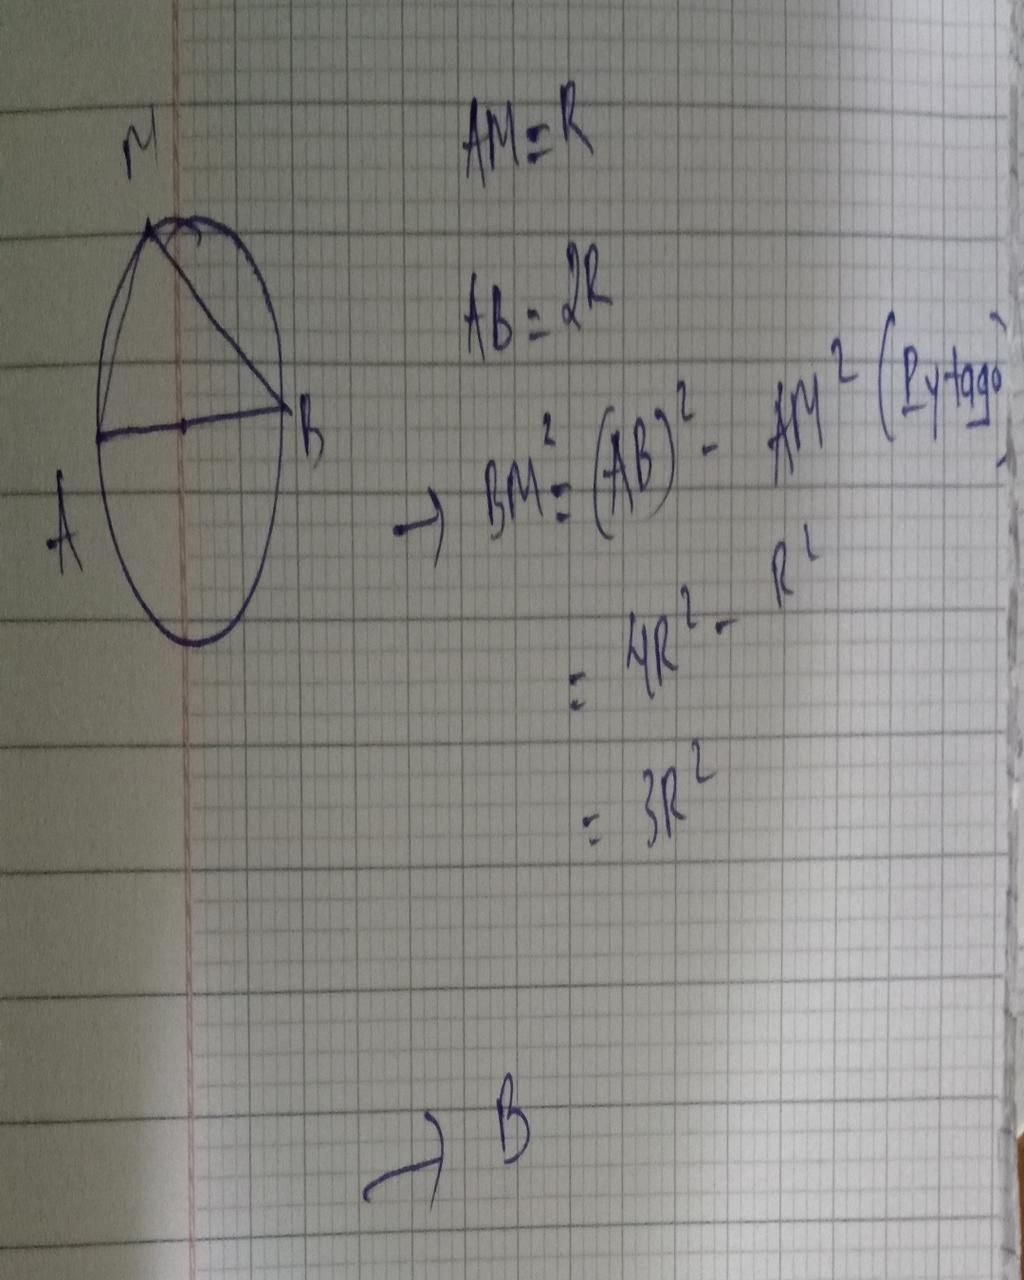 M
AM = R
AB = 2R
B
A
→ BM² = (AB)² - AM² (Pytago)
= 4R² - R²
= 3R²
→ B